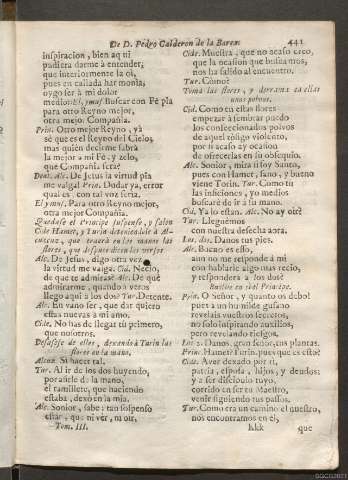 De D. Pedro Calderon de la Barca. 441
inspiracion, bien aq ni
pudiera darme à entender,
que interiormente la oì,
pues en callada harmonia,
oygo ser à mi dolor
El, y mus. Buscar con Fè pia
para otro Reyno mejor,
otra mejor Compañia.
Prin. Otro mejor Reyno, ya
sè que es el Reyno del Cielo,
mas quien decirme sabrà
la mejor a mi Fè, y zelo,
que Compañia serà?
Alc. De Jesus la virtud pia
me valga! Princ. Dudar ya, error
qual es, con tal voz seria.
El y mus. Para otro Reyno mejor,
otra mejor Compañia.
Quedase el Principe suspenso, y salen
Cide Hamet, y Turin deteniendole à Al-
cuzcuz, que traerà en las manos las
flores, que dispone dicen los versos
Alc. De Jesus, digo otra vez,
la virtud me valga. Cid. Necio,
de que te admiras? Alc. De què
admirarme, quando à veros
llego aqui à los dos? Tur. Detente.
Alc. En vano ser, que dar quiero
estas nuevas à mi amo.
Cide. No has de llegar tù primero,
que nosotros.
Desasese de ellos, dexando à Turin las
flores en la mano.
Alcuz. Si hacer tal.
Tur. Al ir de los dos huyendo,
por asirle de la mano,
el ramillete, que haciendo
estaba, dexò en la mia.
Alc. Sonior, sabe: tan solpenso
estar, que ni ver, ni oir,
Tom. III.
Cid. Muestra, que no acaso creo,
que la ocasion que buscamos,
nos ha salido al encuentro.
Tur. Como?
Toma las flores, y derrama en ellas
unos polvos.
Cid. Como en estas flores
empezar à sembrar puedo
los confeccionados polvos
de aquel tosigo violento,
por si acaso ay ocasion
de ofrecerlas en su obsequio.
Alc. Sonior, mira si soy Santo,
pues con Hamet, sano, y bueno
viene Torin. Tur. Como tu
las inficiones, yo medios
buscarè de ir à tu mano.
Cid. Ya lo estan. Alc. No ay oir?
Tur. Lleguèmos
con nuestra desecha aora.
Los. dos. Danos tus pies.
Alc. Bocano es esto,
aun no me responde à mi
con hablarle algo mas recio,
y respondera à los dos?
Buelve en si el Principe.
Prin. O Señor, y quanto os debo!
pues à un humilde gusano
revelais vuestros secretos,
no solo inspirando auxilios,
pero revelando riesgos.
Los 2. Danos, gran señor, tus plantas.
Prin. Hamet? Turin? pues que es esto?
Cid. Aver dexado por ti,
patria, esposa, hijos, y deudos;
y à ser discipulo tuyo,
corrido en ser tu Maestro,
venir siguiendo tus passos.
Tur. Como era un camino el nuestro,
nos encontramos en el,
Kkk que